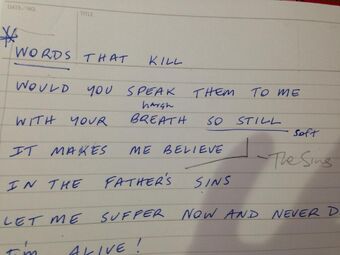 DATE/NO.
TITLE
* WORDS THAT KILL
WOULD YOU SPEAK THEM TO ME
harsh
WITH YOUR BREATH SO STILL
soft
IT MAKES ME BELIEVE
- The Sins
IN THE FATHER'S SINS
LET ME SUFFER NOW AND NEVER D
I'M ALIVE!